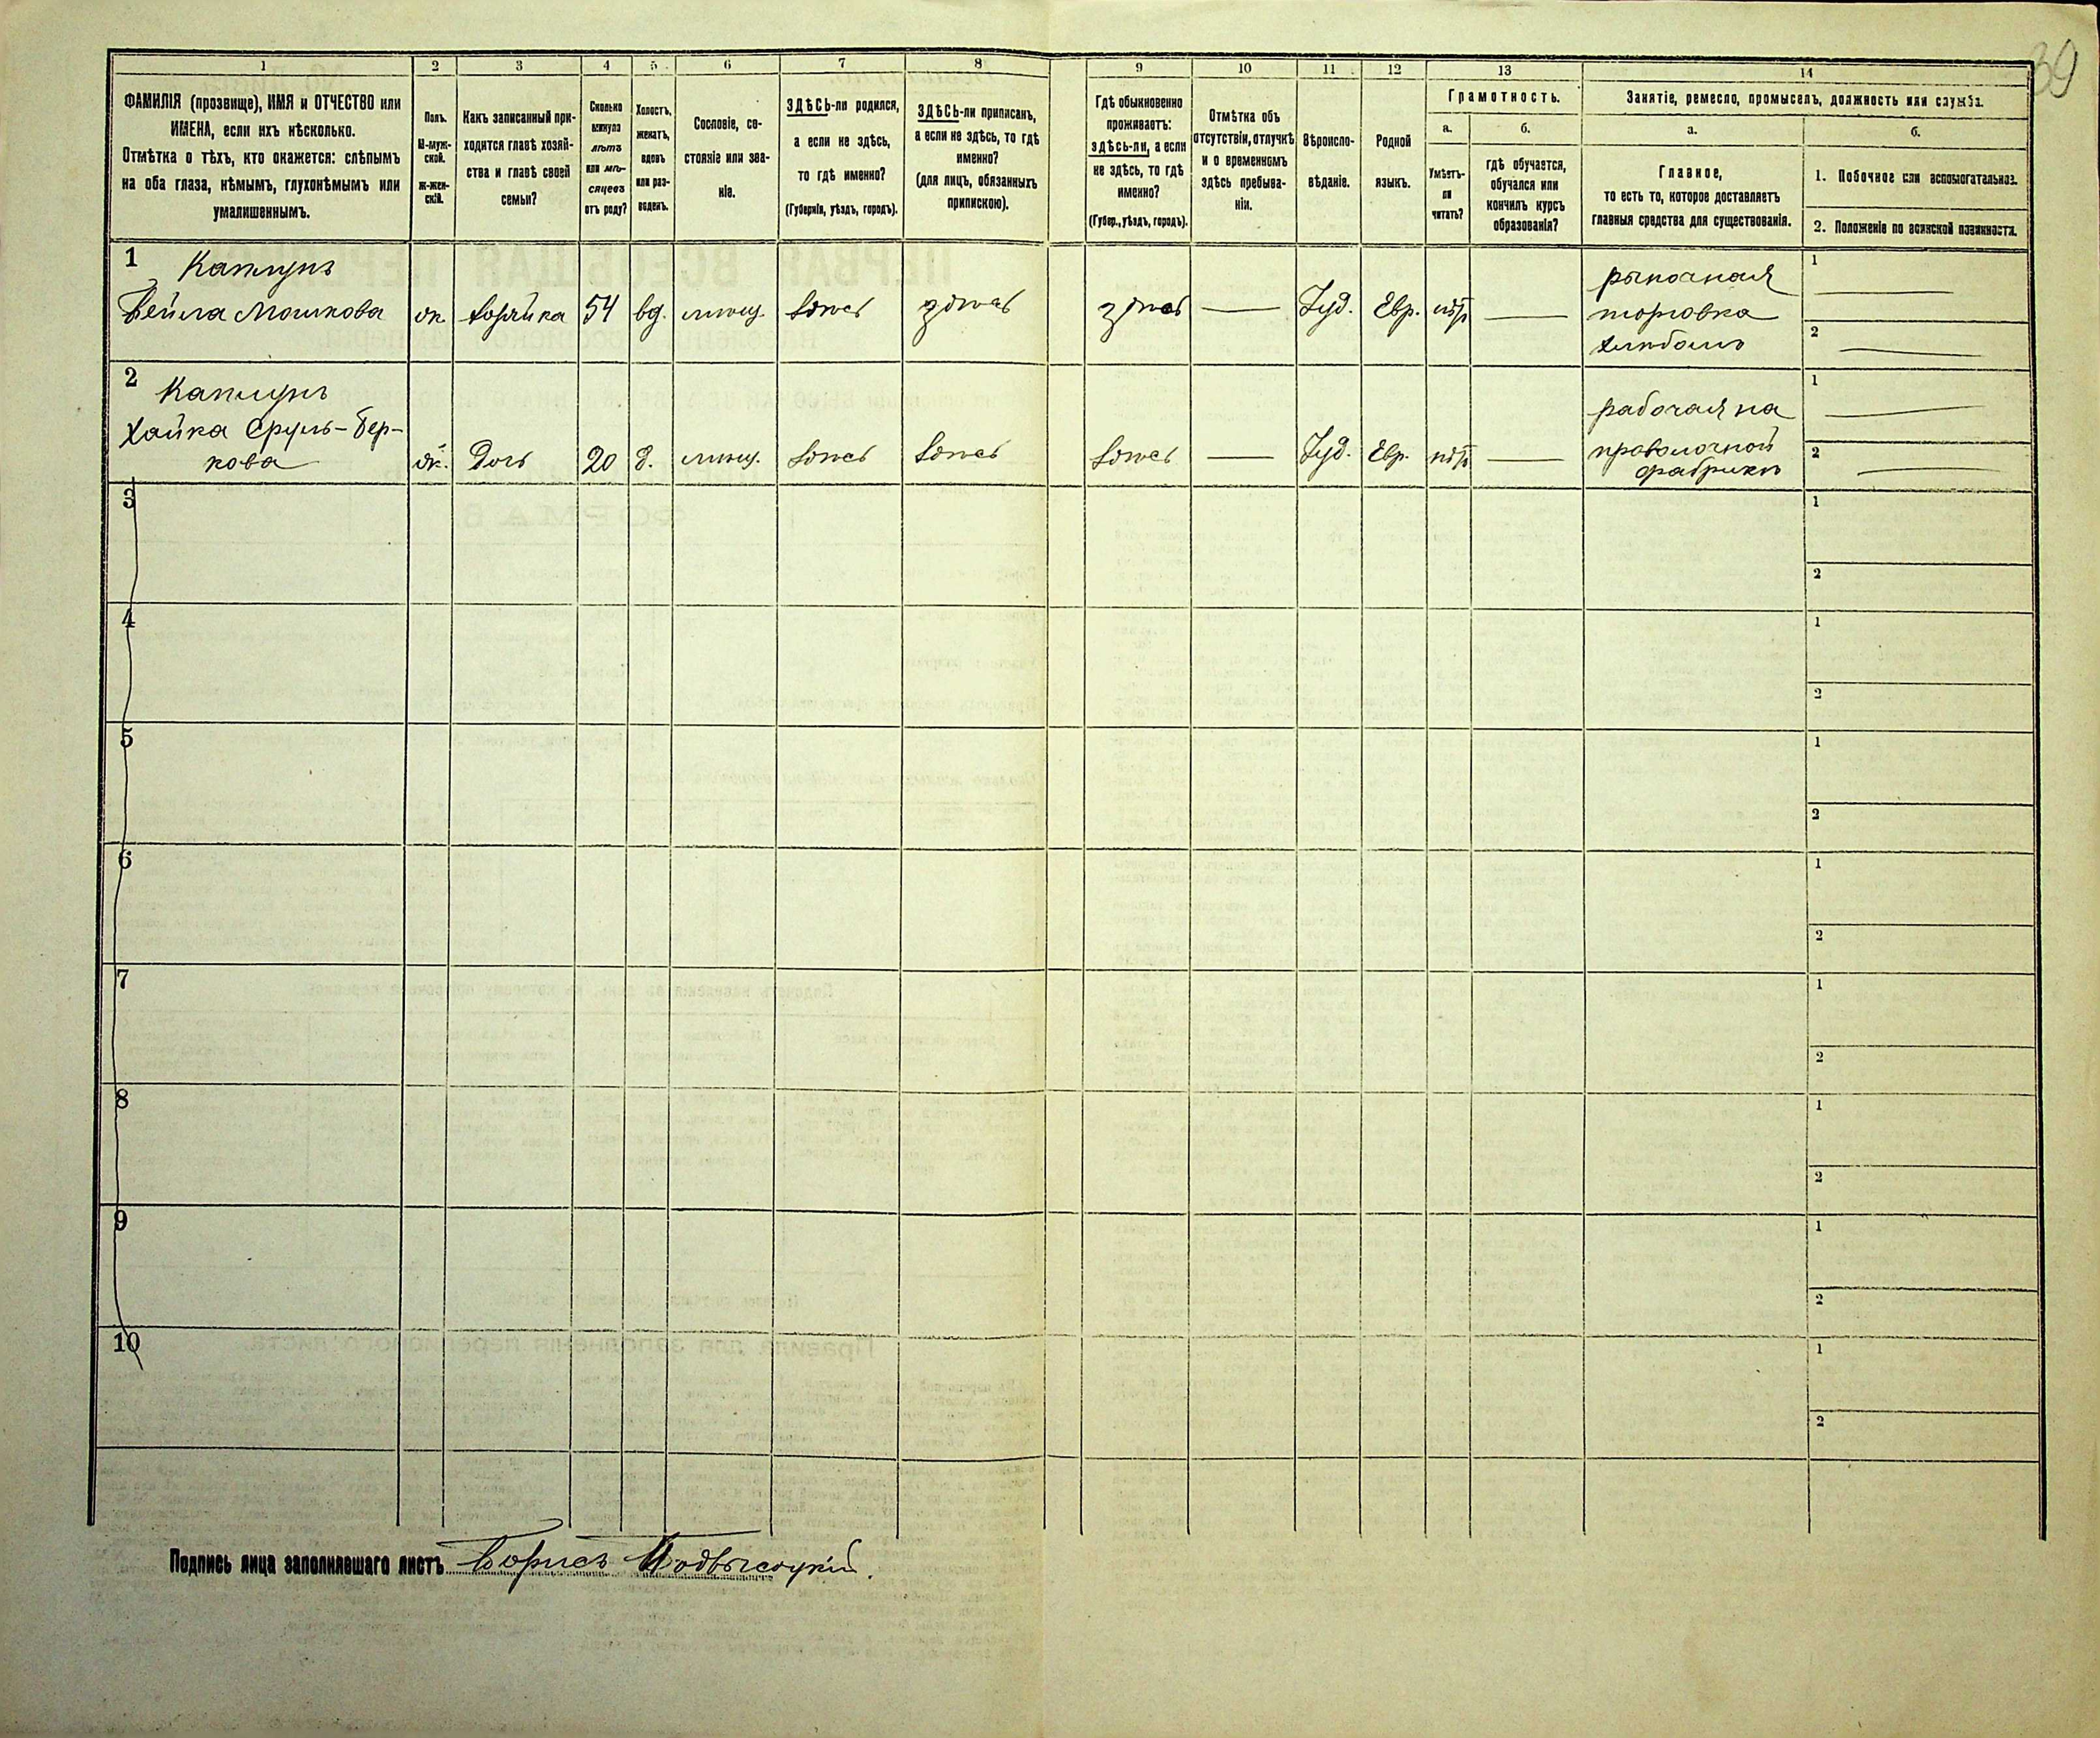 39
1 2 3 4 5 6 7 8 9 10 11 12 13 14
ФАМИЛІЯ (прозвище), ИМЯ и ОТЧЕСТВО или
ИМЕНА, если ихъ нѣсколько.
Отмѣтка о тѣхъ, кто окажется: слѣпымъ
на оба глаза, нѣмымъ, глухонѣмымъ или
умалишеннымъ.
Полъ.
М-муж-
ской.
ж-жен-
скій.
Какъ записанный при-
ходится главѣ хозяй-
ства и главѣ своей
семьи?
Сколько
минуло
лѣтъ
или мѣ-
сяцевъ
отъ роду?
Холостъ,
женатъ,
вдовъ
или раз-
веденъ.
Сословіе, со-
стояніе или зва-
ніе.
ЗДѢСЬ-ли родился,
а если не здѣсь,
то гдѣ именно?
(Губернія, уѣздъ, городъ).
ЗДѢСЬ-ли приписанъ,
а если не здѣсь, то гдѣ
именно?
(для лицъ, обязанныхъ
припискою).
Гдѣ обыкновенно
проживаетъ:
здѣсь-ли, а если
не здѣсь, то гдѣ
именно?
(Губер., уѣздъ, городъ).
Отмѣтка объ
отсутствіи, отлучкѣ
и о временномъ
здѣсь пребыва-
ніи.
Вѣроиспо-
вѣданіе.
Родной
языкъ.
Грамотность.
а.
Умѣетъ-
ли
читать?
б.
гдѣ обучается,
обучался или
кончилъ курсъ
образованія?
Занятіе, ремесло, промыселъ, должность или служба.
а.
Главное,
то есть то, которое доставляетъ
главныя средства для существованія.
б.
1. Побочное или вспомогательное.
2. Положеніе по воинской повинности.
1 Каплунъ
Бейла Мошкова ж. хозяйка 54 вд. мѣщ. здѣсь здѣсь здѣсь — Іуд. Евр. нѣтъ —
рыночная
торговка
хлѣбомъ
1 —
2 —
2 Каплунъ
Хайка Сруль-Бер-
кова ж. Дочь 20 д. мѣщ. здѣсь здѣсь здѣсь — Іуд. Евр. нѣтъ —
рабочая на
проволочной
фабрикѣ
1 —
2 —
3 1
2
4 1
2
5 1
2
6 1
2
7 1
2
8 1
2
9 1
2
10 1
2
Подпись лица заполнявшаго листъ Борисъ Подвысоцкій.